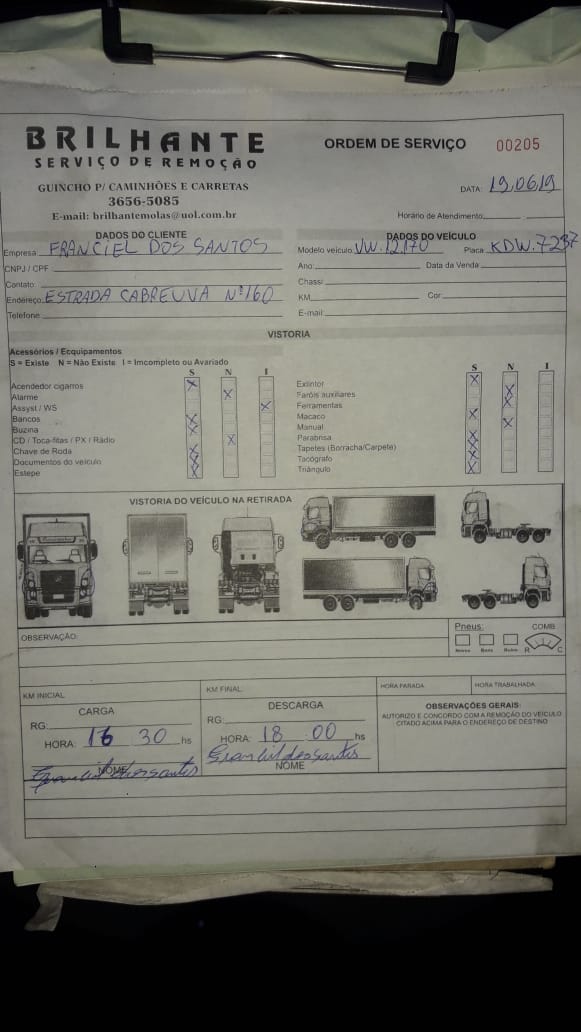 BRILHANTE
SERVIÇO DE REMOÇÃO
GUINCHO P/ CAMINHÕES E CARRETAS
3656-5085
E-mail: brilhantemolas@uol.com.br
ORDEM DE SERVIÇO 00205
DATA: 19.06.19
Horário de Atendimento:
DADOS DO CLIENTE
Empresa: FRANCIEL DOS SANTOS
CNPJ / CPF
Contato:
Endereço: ESTRADA CABREUVA Nº160
Telefone:
DADOS DO VEÍCULO
Modelo veículo: VW.12.170 Placa KDW.7237
Ano: Data da Venda:
Chassi:
KM Cor
E-mail:
VISTORIA
Acessórios / Ecquipamentos
S = Existe N = Não Existe I = Imcompleto ou Avariado
S N I
Acendedor cigarros X
Alarme X
Assyst / WS X
Bancos X
Buzina X
CD / Toca-fitas / PX / Rádio X
Chave de Roda X
Documentos do veículo X
Estepe X
S N I
Extintor X
Faróis auxiliares X
Ferramentas X
Macaco X
Manual X
Parabrisa X
Tapetes (Borracha/Carpete) X
Tacógrafo X
Triângulo X
VISTORIA DO VEÍCULO NA RETIRADA
OBSERVAÇÃO:
Pneus: COMB
R C
KM INICIAL
KM FINAL
HORA PARADA
HORA TRABALHADA
CARGA
RG:
HORA: 16 30 hs
NOME
DESCARGA
RG:
HORA: 18 00 hs
NOME
OBSERVAÇÕES GERAIS:
AUTORIZO E CONCORDO COM A REMOÇÃO DO VEÍCULO
CITADO ACIMA PARA O ENDEREÇO DE DESTINO